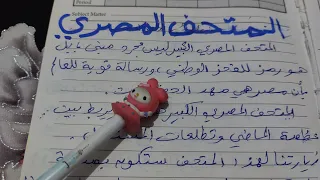 Subject Master
المتحف المصري
المتحف المصري الكبير ليس مجرد مبنى جميل
هو رمز للفخر الوطني ورسالة قوية للعالم
بأن مصر هي مهد
المتحف المصري الكبير يربط بين
عظمة الماضي وتطلعات
زيارتنا لهذا المتحف ستكون